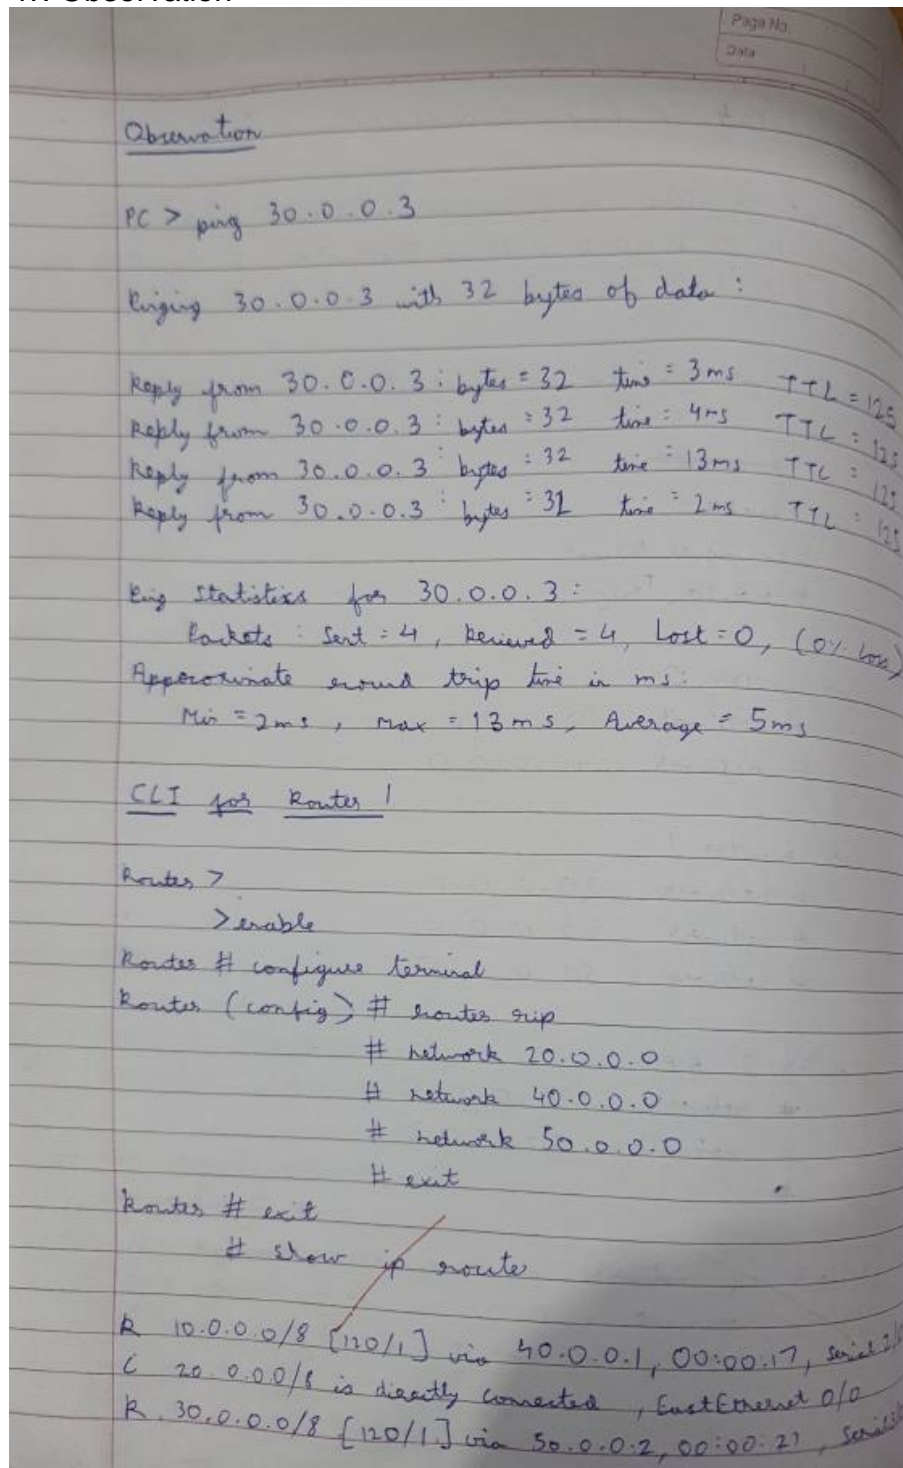 Page No.
Data
Observation
PC > ping 30.0.0.3
Pinging 30.0.0.3 with 32 bytes of data :
Reply from 30.0.0.3 : bytes = 32 time = 3ms TTL = 125
Reply from 30.0.0.3 : bytes = 32 time = 4ms TTL = 125
Reply from 30.0.0.3 : bytes = 32 time = 13ms TTL = 125
Reply from 30.0.0.3 : bytes = 32 time = 2ms TTL = 125
Ping Statistics for 30.0.0.3 :
Packets : Sent = 4, Recieved = 4, Lost = 0, (0% Loss)
Approximate round trip time in ms :
Min = 2ms , Max = 13ms, Average = 5ms
CLI for Router 1
Router >
> enable
Router # configure terminal
Router (config) # router rip
# network 20.0.0.0
# network 40.0.0.0
# network 50.0.0.0
# exit
Router # exit
# show ip route
R 10.0.0.0/8 [120/1] via 40.0.0.1, 00:00:17, Serial
C 20.0.0.0/8 is directly connected , FastEthernet 0/0
R 30.0.0.0/8 [120/1] via 50.0.0.2, 00:00:21 , Serial